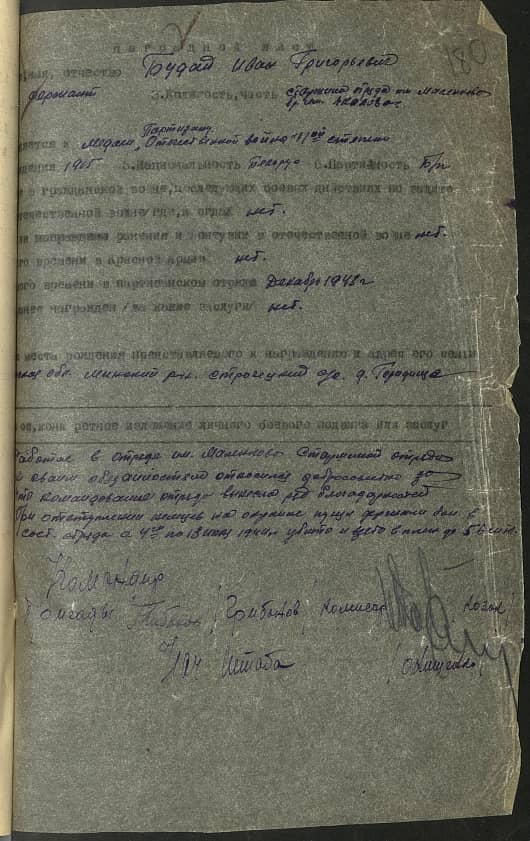 НАГРАДНОЙ ЛИСТ
180
имя, отчество Будай Иван Григорьевич
сержант 3.Должность, часть Старшина отряда им Маленкова
медали, Партизану Отечественной войны II ой степени
1905 5.Национальность 6.Партийность Б/п
в гражданской войне, последующих боевых действиях по защите
отечественной войне /где, когда/ нет.
ранения и контузии в отечественной войне нет.
го времени в Красной Армии нет.
ого времени в партизанском отряде Декабрь 1943 г
ранее награжден /за какие заслуги/ нет.
места рождения представляемого к награждению и адрес его семьи
обл. Минский р-н. д. Городище
конкретное изложение личного боевого подвига или заслуг
Работая в отряде им. Маленкова Старшиной отряда
к своим обязанностям относился добросовестно за
что командование отряда вынесло ряд благодарностей
При отступлении немцев на окраине пущи держали бои. в
сост. отряда с 4 го по 13 июля 1944 г убито и взято в плен до
Командир
Бригады /Грибанов/ Комиссар /Козак/
Нач Штаба